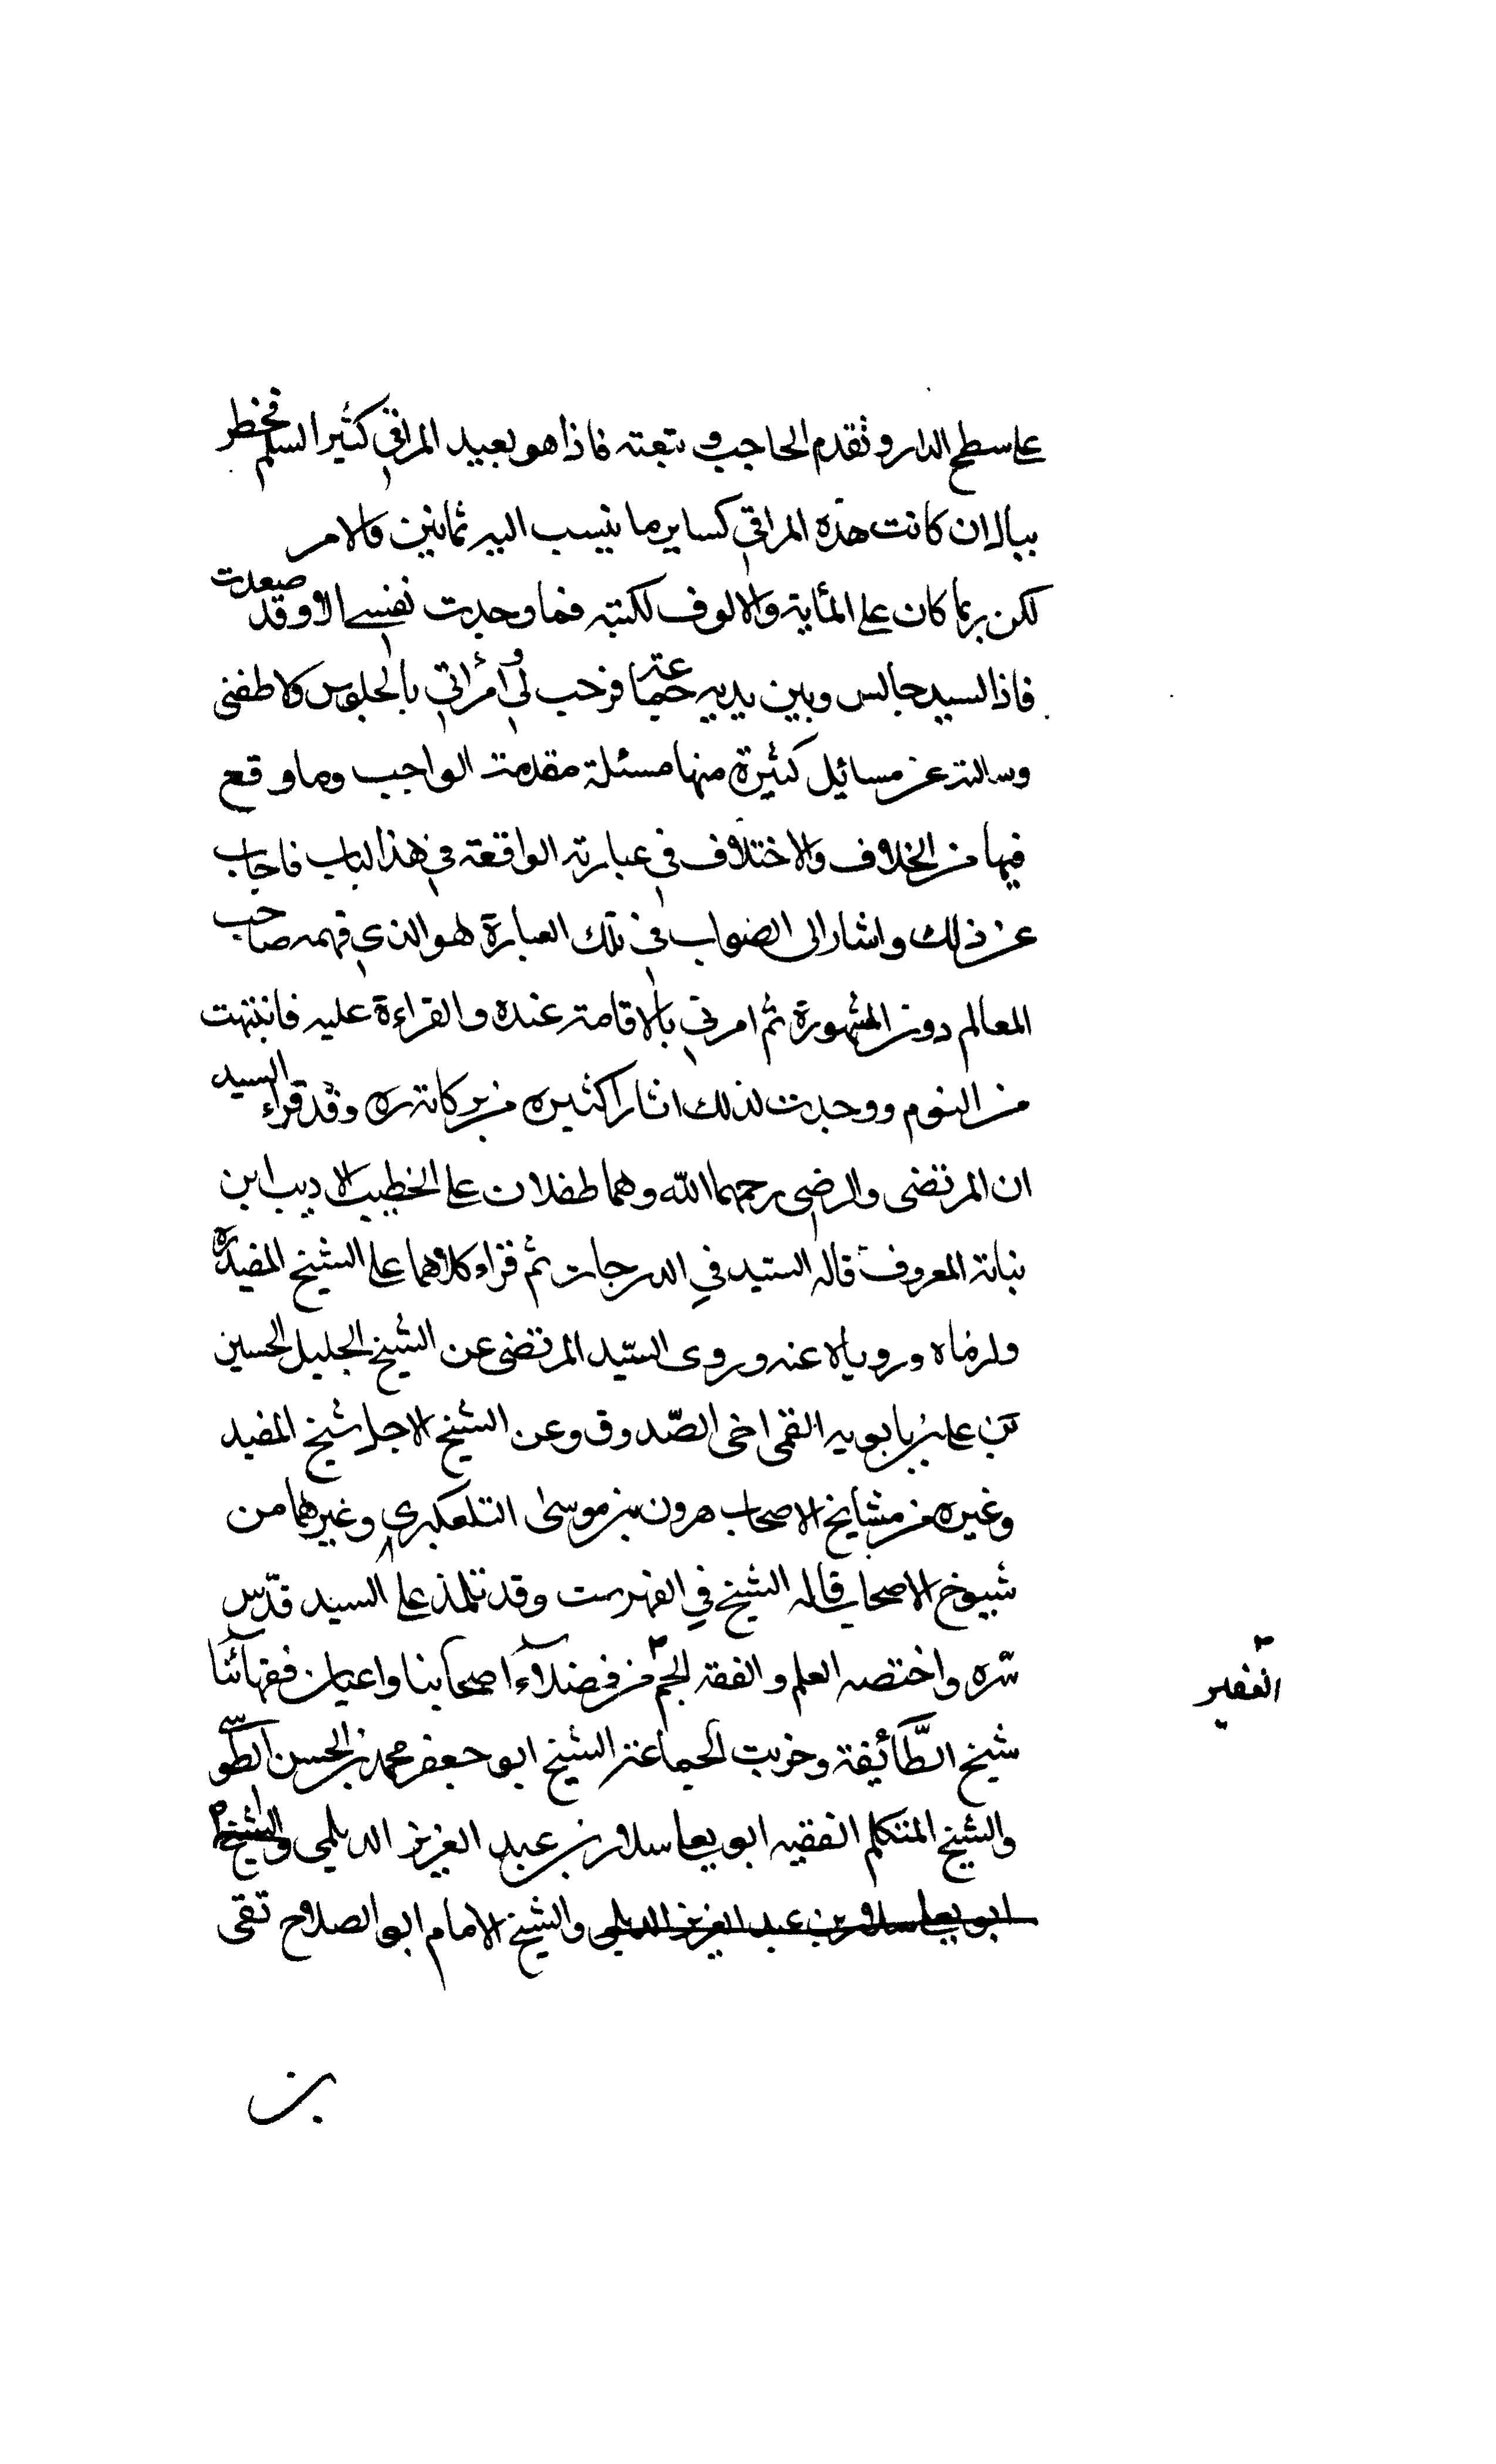 على سطح الدار وتقدم الحاجب و تبعته فاذا هو بعيد المراقي كثير السلم فخطر
ببالي ان كانت هذه المراقي كساير ما ينسب اليه ثمانين والامر
لكن ربما كان على المأية والالوف لكنته فما وجدت نفسي الا وقد صعدت
فاذا السيد جالس وبين يديه جماعة فرحب لي وامراني بالجلوس ولاطفني
وسالته عن مسائل كثيرة منها مسئلة مقدمة الواجب وما وقع
فيها من الخلاف والاختلاف في عبارته الواقعة في هذا الباب فاجاب
عن ذلك واشار الى الصواب في تلك العبارة هو الذي فهمه صاحب
المعالم دون المشهورة ثم امرني بالاقامة عنده والقراءة عليه فانتبهت
من النوم ووجدت لذلك اثارا كثيره من بركاته ره وقد قراء السيد
ان المرتضى والرضي رحمهما الله وهما طفلان على الخطيب الاديب ابن
نباتة المعروف قاله السيد في الدرجات ثم قراء كلاهما على الشيخ المفيد ره
ولزماه ورویاه عنه وروى السيد المرتضى عن الشيخ الجليل الحسين
بن على بن بابويه القمى اخى الصدوق وعن الشيخ الاجل شيخ المفيد
وغيره من مشايخ الاصحاب هرون بن موسى التلعكبري وغيرهما من
شيوخ الاصحاب قاله الشيخ في الفهرست وقد تلمذ على السيد قدس
سره واختصه العلم والفقه الجم من فضلاء اصحابنا واعيان فقهائنا
الغفير
شيخ الطائفة وخريت الجماعة الشيخ ابو جعفر محمد بن الحسن الطوسي
والشيخ المتكلم الفقيه ابو يعلى سلار بن عبد العزيز الديلمي والشيخ
ابو يعلى سلار بن عبد العزيز الديلمي والشيخ الامام ابو الصلاح تقى
بن